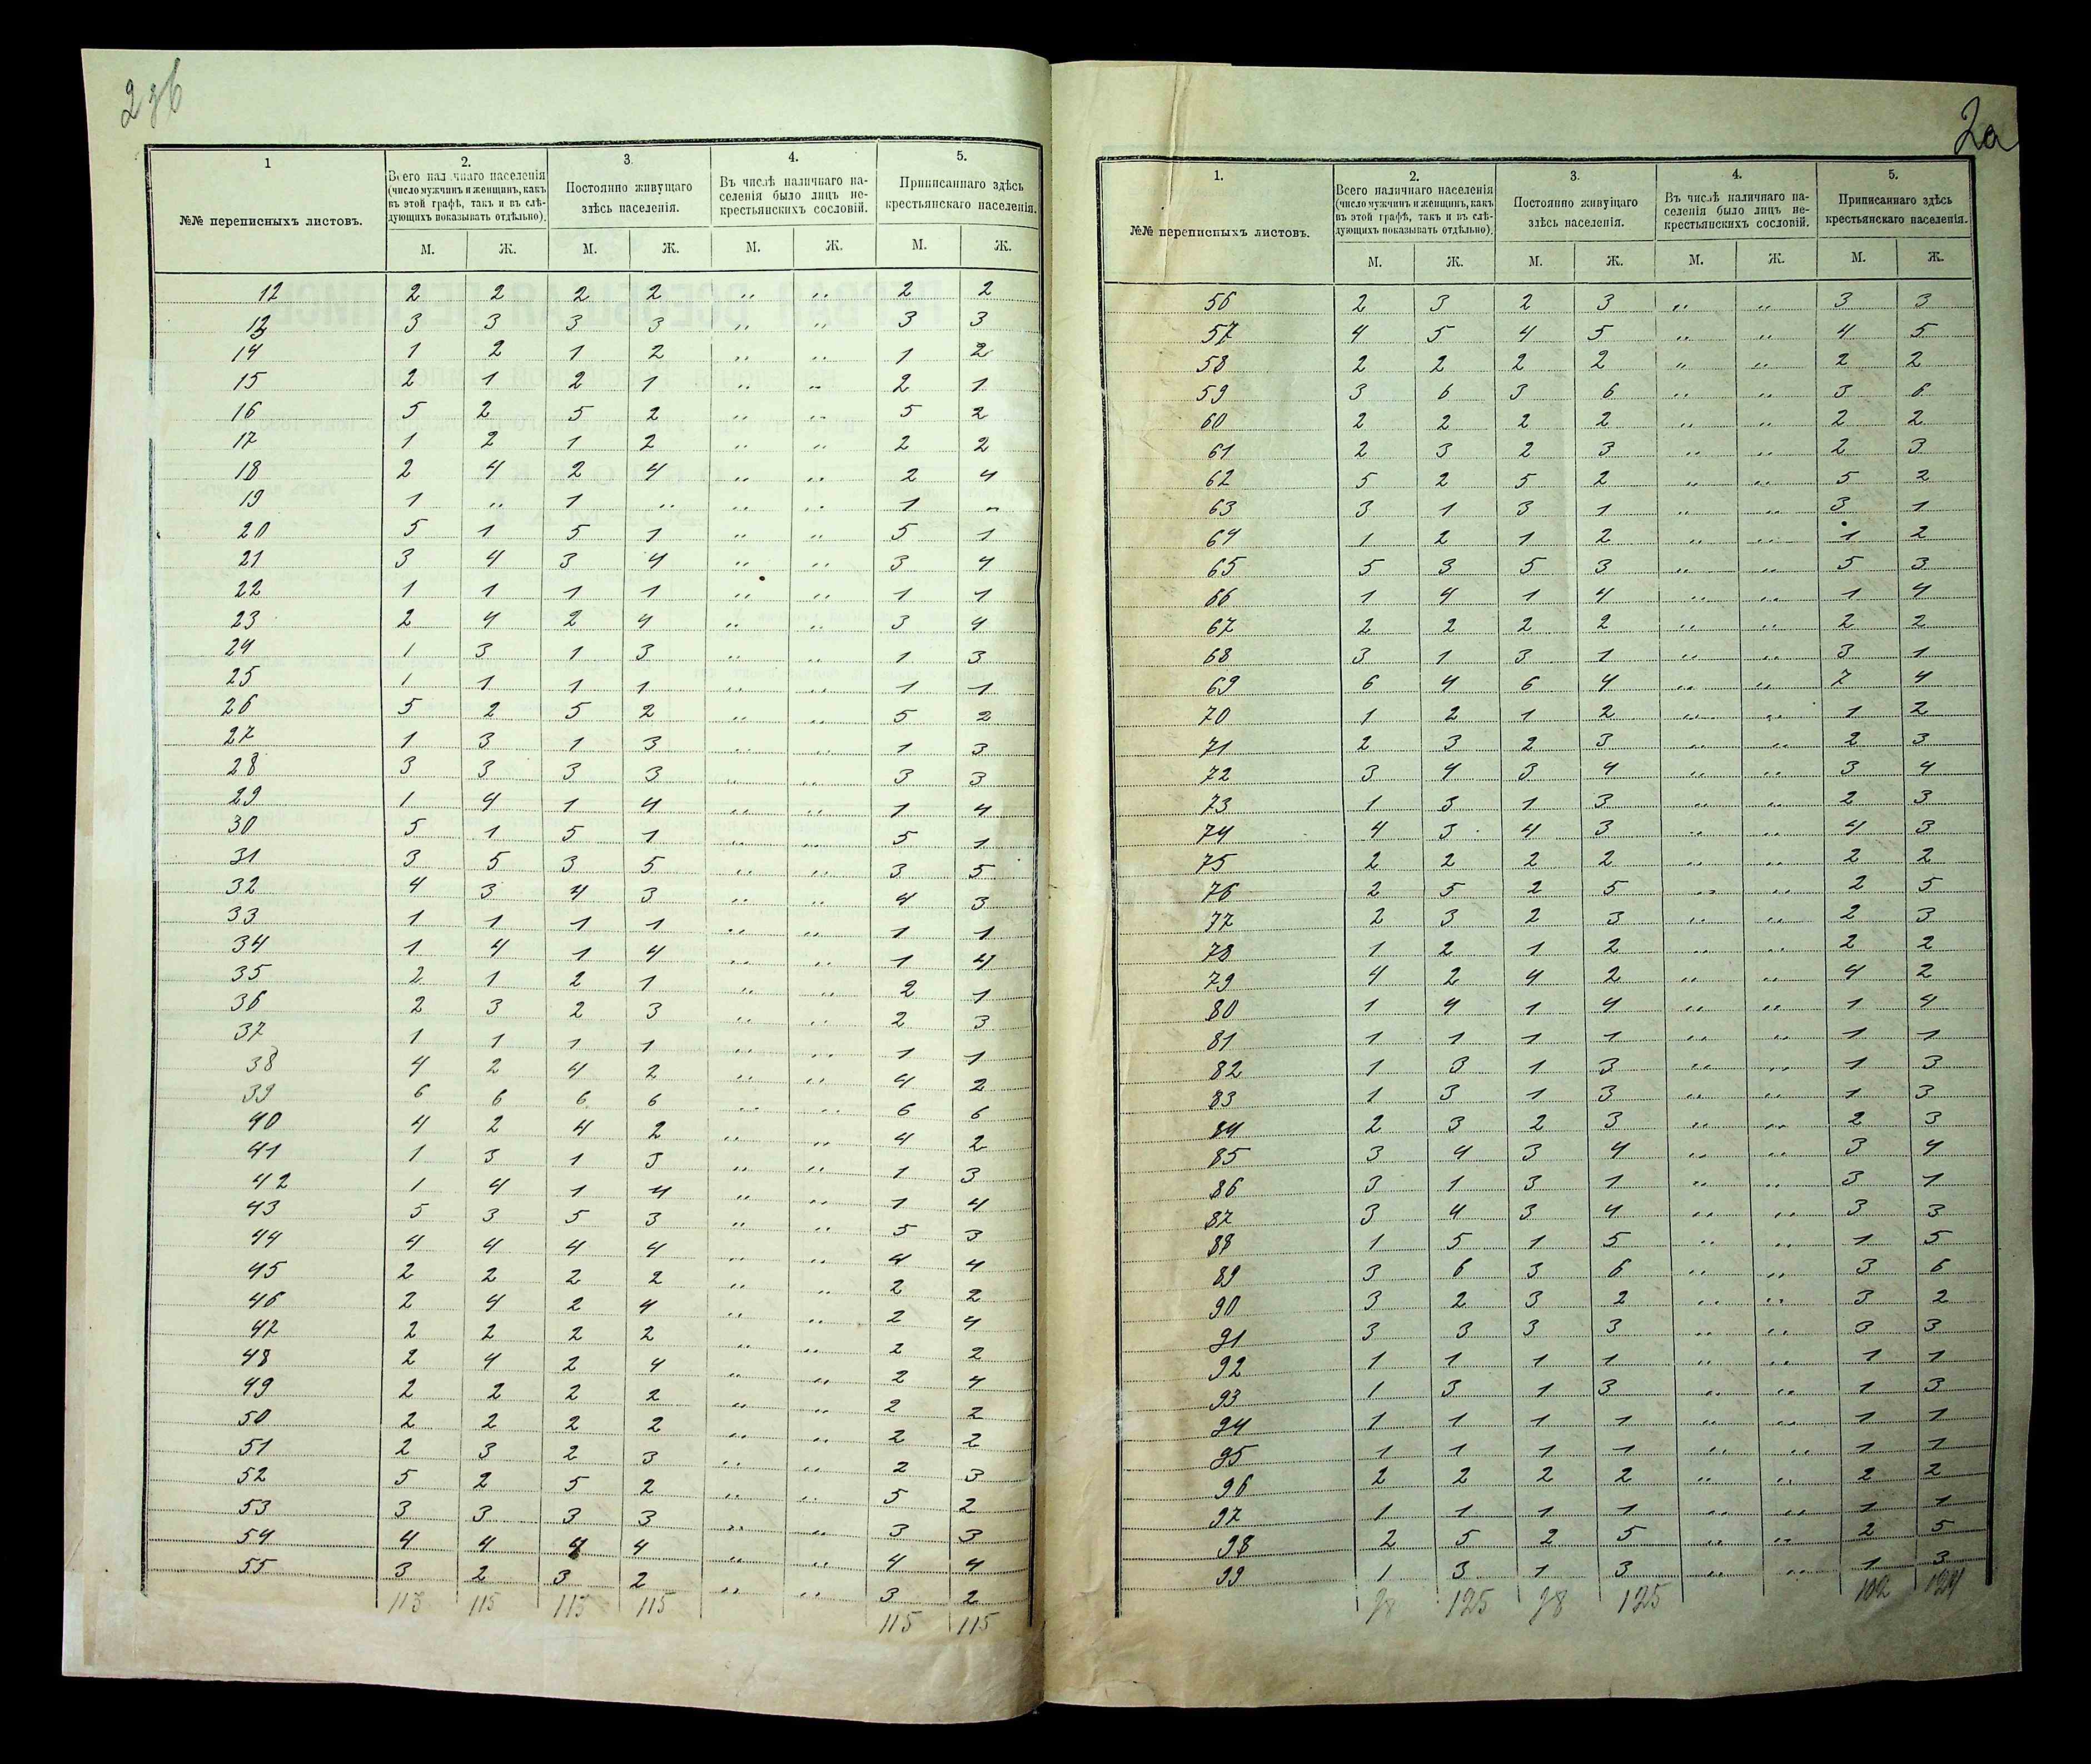 1 2. 3. 4. 5.
№№ переписныхъ листовъ. Всего наличнаго населенія (число мужчинъ и женщинъ, какъ въ этой графѣ, такъ и въ слѣдующихъ показывать отдѣльно). Постоянно живущаго здѣсь населенія. Въ числѣ наличнаго населенія было лицъ некрестьянскихъ сословій. Приписаннаго здѣсь крестьянскаго населенія.
М. Ж. М. Ж. М. Ж. М. Ж.
12 2 2 2 2 „ „ 2 2
13 3 3 3 3 „ „ 3 3
14 1 2 1 2 „ „ 1 2
15 2 1 2 1 „ „ 2 1
16 5 2 5 2 „ „ 5 2
17 1 2 1 2 „ „ 2 2
18 2 4 2 4 „ „ 2 4
19 1 „ 1 „ „ „ 1 „
20 5 1 5 1 „ „ 5 1
21 3 4 3 4 „ „ 3 4
22 1 1 1 1 „ „ 1 1
23 2 4 2 4 „ „ 3 4
24 1 3 1 3 „ „ 1 3
25 1 1 1 1 „ „ 1 1
26 5 2 5 2 „ „ 5 2
27 1 3 1 3 „ „ 1 3
28 3 3 3 3 „ „ 3 3
29 1 4 1 4 „ „ 1 4
30 5 1 5 1 „ „ 5 1
31 3 5 3 5 „ „ 3 5
32 4 3 4 3 „ „ 4 3
33 1 1 1 1 „ „ 1 1
34 1 4 1 4 „ „ 1 4
35 2 1 2 1 „ „ 2 1
36 2 3 2 3 „ „ 2 3
37 1 1 1 1 „ „ 1 1
38 4 2 4 2 „ „ 4 2
39 6 6 6 6 „ „ 6 6
40 4 2 4 2 „ „ 4 2
41 1 3 1 3 „ „ 1 3
42 1 4 1 4 „ „ 1 4
43 5 3 5 3 „ „ 5 3
44 4 4 4 4 „ „ 4 4
45 2 2 2 2 „ „ 2 2
46 2 4 2 4 „ „ 2 4
47 2 2 2 2 „ „ 2 2
48 2 4 2 4 „ „ 2 4
49 2 2 2 2 „ „ 2 2
50 2 2 2 2 „ „ 2 2
51 2 3 2 3 „ „ 2 3
52 5 2 5 2 „ „ 5 2
53 3 3 3 3 „ „ 3 3
54 4 4 4 4 „ „ 4 4
55 3 2 3 2 „ „ 3 2
113 115 113 115 115 115
2а
1. 2. 3. 4. 5.
№№ переписныхъ листовъ. Всего наличнаго населенія (число мужчинъ и женщинъ, какъ въ этой графѣ, такъ и въ слѣдующихъ показывать отдѣльно). Постоянно живущаго здѣсь населенія. Въ числѣ наличнаго населенія было лицъ некрестьянскихъ сословій. Приписаннаго здѣсь крестьянскаго населенія.
М. Ж. М. Ж. М. Ж. М. Ж.
56 2 3 2 3 „ „ 3 3
57 4 5 4 5 „ „ 4 5
58 2 2 2 2 „ „ 2 2
59 3 6 3 6 „ „ 3 6
60 2 2 2 2 „ „ 2 2
61 2 3 2 3 „ „ 2 3
62 5 2 5 2 „ „ 5 2
63 3 1 3 1 „ „ 3 1
64 1 2 1 2 „ „ 1 2
65 5 3 5 3 „ „ 5 3
66 1 4 1 4 „ „ 1 4
67 2 2 2 2 „ „ 2 2
68 3 1 3 1 „ „ 3 1
69 6 4 6 4 „ „ 7 4
70 1 2 1 2 „ „ 1 2
71 2 3 2 3 „ „ 2 3
72 3 4 3 4 „ „ 3 4
73 1 3 1 3 „ „ 2 3
74 4 3 4 3 „ „ 4 3
75 2 2 2 2 „ „ 2 2
76 2 5 2 5 „ „ 2 5
77 2 3 2 3 „ „ 2 3
78 1 2 1 2 „ „ 2 2
79 4 2 4 2 „ „ 4 2
80 1 4 1 4 „ „ 1 4
81 1 1 1 1 „ „ 1 1
82 1 3 1 3 „ „ 1 3
83 1 3 1 3 „ „ 1 3
84 2 3 2 3 „ „ 2 3
85 3 4 3 4 „ „ 3 4
86 3 1 3 1 „ „ 3 1
87 3 4 3 4 „ „ 3 3
88 1 5 1 5 „ „ 1 5
89 3 6 3 6 „ „ 3 6
90 3 2 3 2 „ „ 3 2
91 3 3 3 3 „ „ 3 3
92 1 1 1 1 „ „ 1 1
93 1 3 1 3 „ „ 1 3
94 1 1 1 1 „ „ 1 1
95 1 1 1 1 „ „ 1 1
96 2 2 2 2 „ „ 2 2
97 1 1 1 1 „ „ 1 1
98 2 5 2 5 „ „ 2 5
99 1 3 1 3 „ „ 1 3
98 125 98 125 102 124